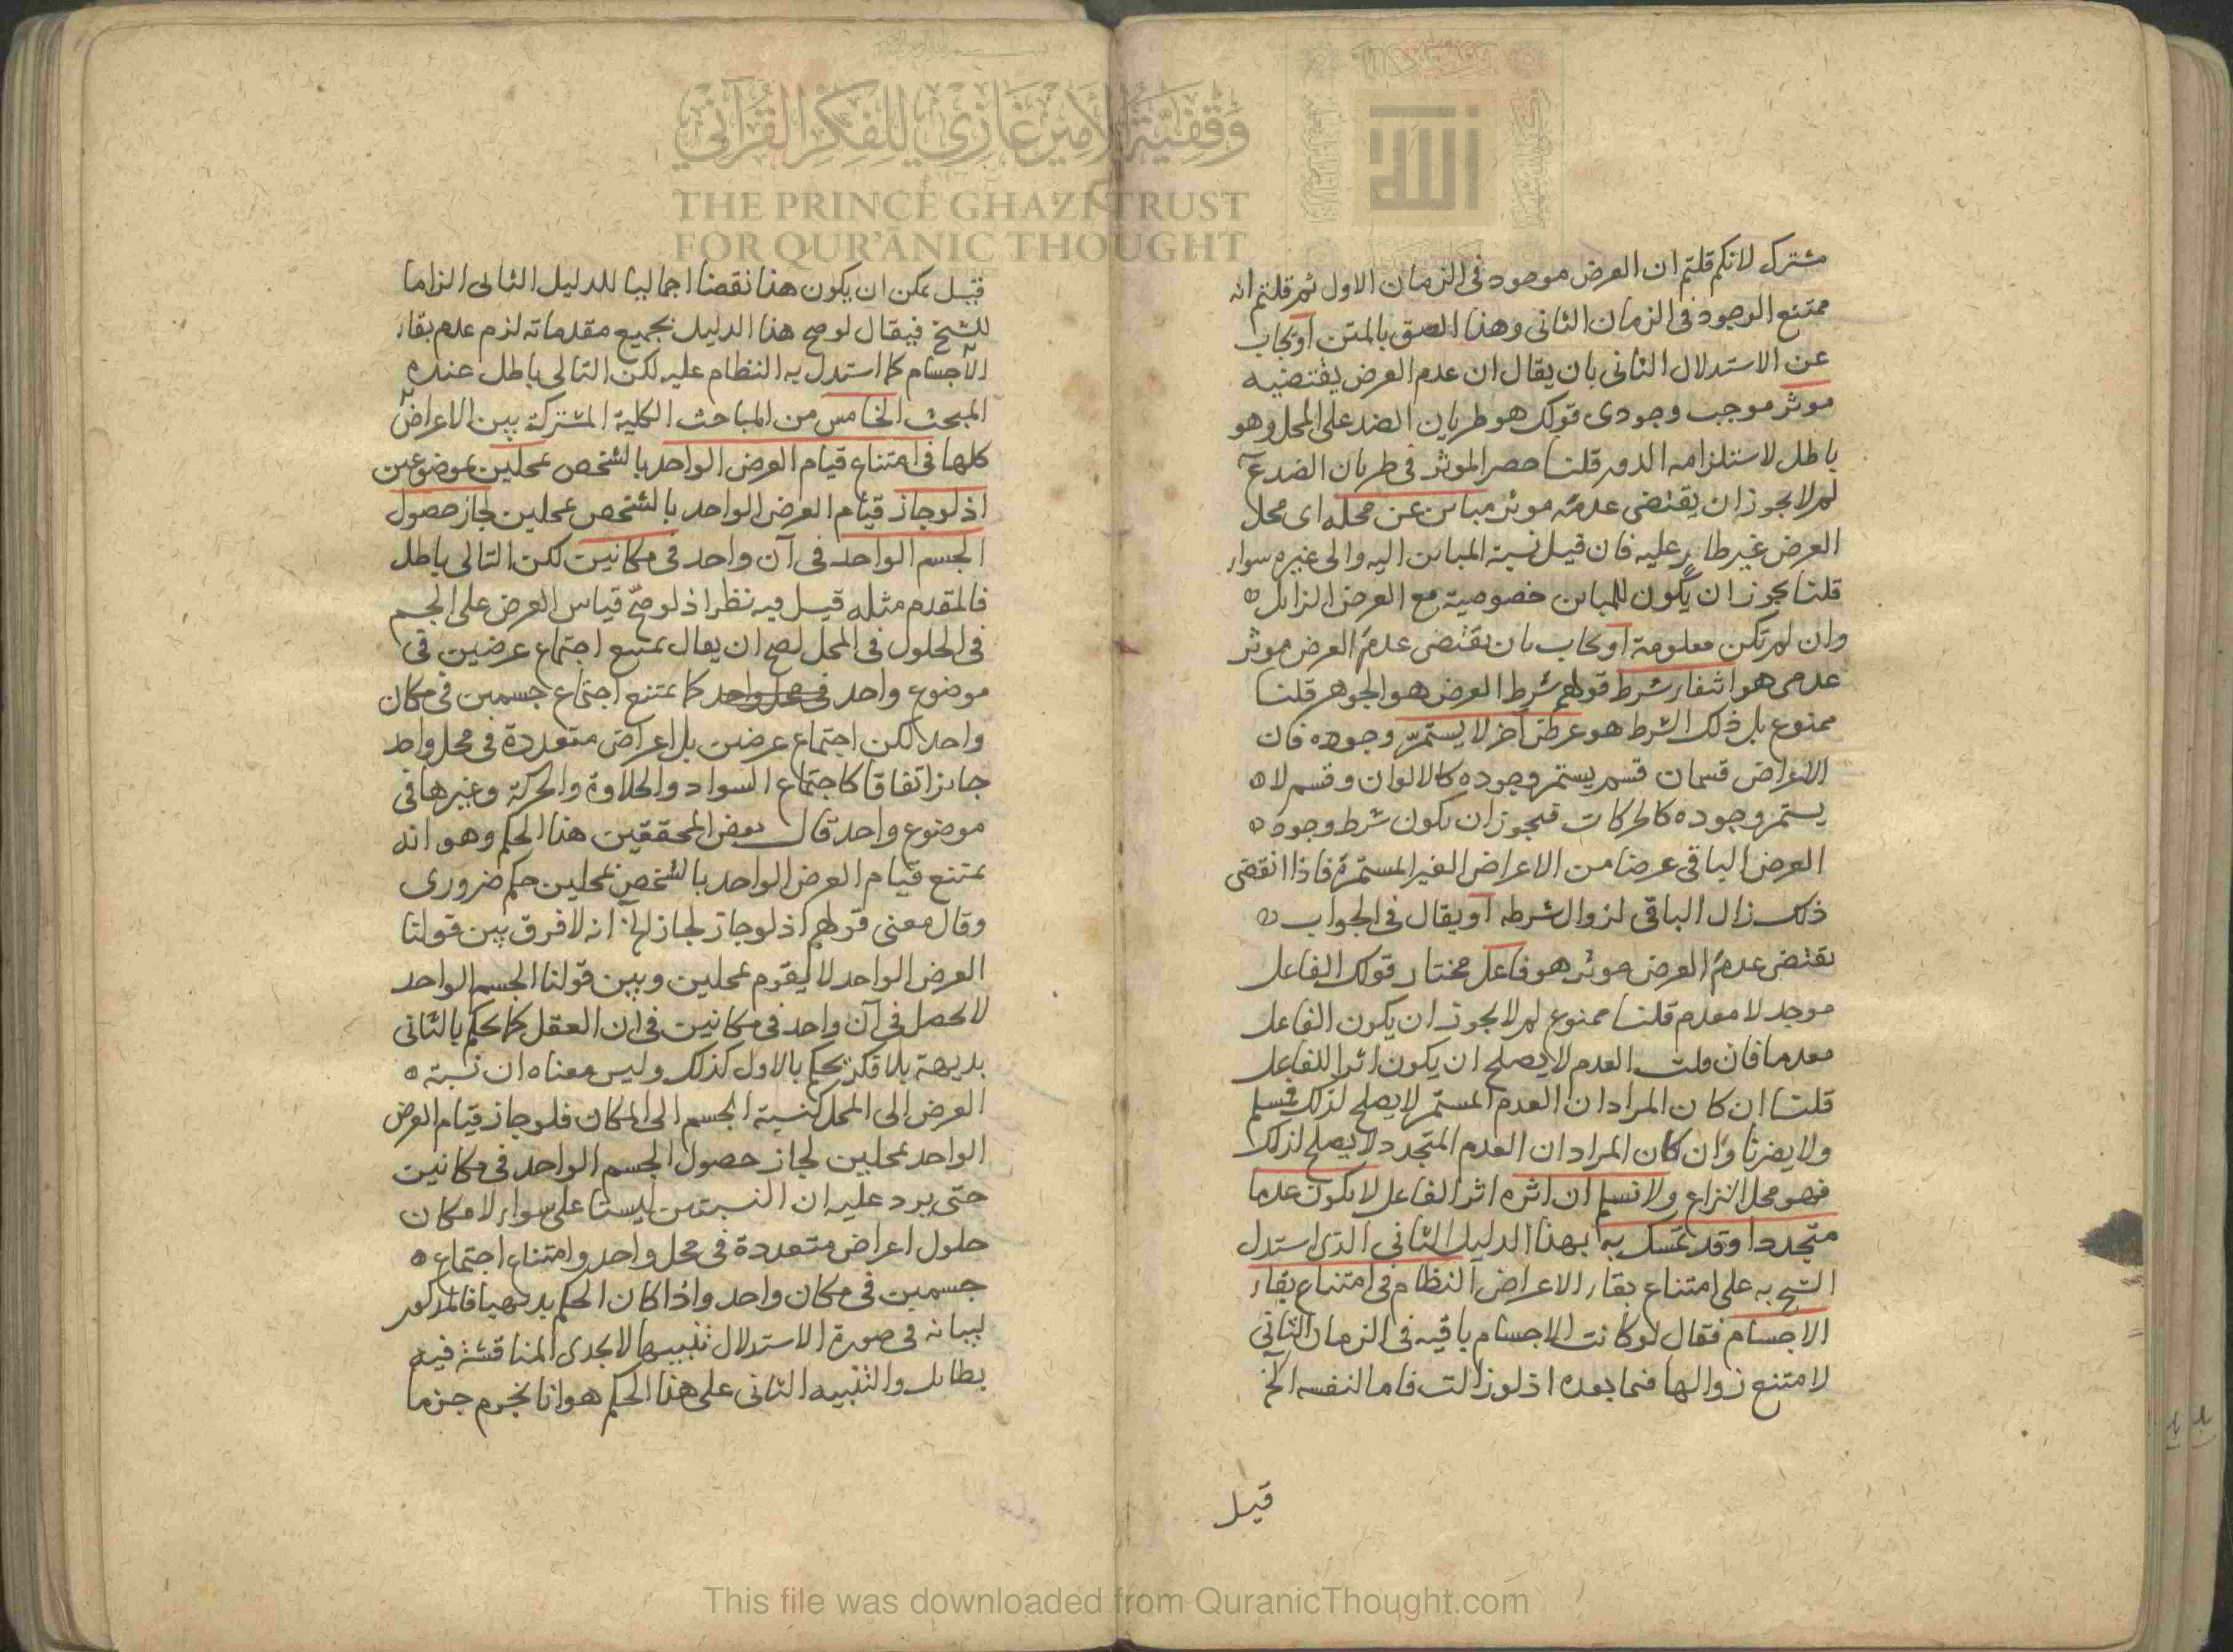 وقفية الأمير غازي للفكر القرآني
THE PRINCE GHAZI TRUST
FOR QUR'ANIC THOUGHT
الله
مشترك لانكم قلتم ان العرض موجود في الزمان الاول ثم قلتم انه
ممتنع الوجود في الزمان الثاني وهذا الصق بالمتن او يجاب
عن الاستدلال الثاني بان يقال ان عدم العرض يقتضيه
موثر موجب وجودى قولك هو طريان الضد على المحل وهو
باطل لاستلزامه الدور قلنا حصر الموثر في طريان الضد مم
لم لا يجوز ان يقتضى عدمه موثر مباين عن محله اى محل
العرض غير طار عليه فان قيل نسبة المباين اليه والى غيره سواء
قلنا يجوز ان يكون للمباين خصوصية مع العرض الزايل
وان لم تكن معلومة او يجاب بان يقتضى عدم العرض موثر
عدمى هو انتفاء شرط قولهم شرط العرض هو الجوهر قلنا
ممنوع بل ذلك الشرط هو عرض آخر لا يستمر وجوده فان
الاعراض قسمان قسم يستمر وجوده كالالوان وقسم لا
يستمر وجوده كالحركات فيجوز ان يكون شرط وجود
العرض الباقى عرضا من الاعراض الغير المستمرة فاذا انقضى
ذلك زال الباقى لزوال شرطه او يقال في الجواب
يقتضى عدم العرض موثر هو فاعل مختار قولك الفاعل
موجد لا معدم قلنا ممنوع لم لا يجوز ان يكون الفاعل
معدما فان قلت العدم لا يصلح ان يكون اثرا للفاعل
قلنا ان كان المراد ان العدم المستمر لا يصلح لذلك فسلم
ولا يضرنا وان كان المراد ان العدم المتجدد لا يصلح لذلك
فهو محل النزاع ولا نسلم ان اثره اثر الفاعل لا يكون عدما
متجددا وقد تمسك به بهذا الدليل الثانى الذى استدل
الشيخ به على امتناع بقاء الاعراض النظام في امتناع بقاء
الاجسام فقال لو كانت الاجسام باقيه في الزمان الثانى
لامتنع زوالها فيما بعده اذ لو زالت فاما لنفسه الخ
قيل
قيل يمكن ان يكون هذا نقضا اجماليا للدليل الثانى الزاما
للشيخ فيقال لو صح هذا الدليل بجميع مقدماته لزم عدم بقاء
الاجسام كما استدل به النظام عليه لكن التالى باطل عنده
المبحث الخامس من المباحث الكلية المشتركة بين الاعراض
كلها في امتناع قيام العرض الواحد بالشخص بمحلين بموضوعين
اذ لو جاز قيام العرض الواحد بالشخص بمحلين لجاز حصول
الجسم الواحد في آن واحد في مكانين لكن التالى باطل
فالمقدم مثله قيل فيه نظر اذ لو صح قياس العرض على الجسم
في الحلول في المحل لصح ان يقال يمتنع اجتماع عرضين في
موضوع واحد في محل واحد كما يمتنع اجتماع جسمين في مكان
واحد لكن اجتماع عرضين بل اعراض متعددة في محل واحد
جائز اتفاقا كاجتماع السواد والحلاوة والحركة وغيرها في
موضوع واحد قال بعض المحققين هذا الحكم وهو انه
يمتنع قيام العرض الواحد بالشخص بمحلين حكم ضرورى
وقال معنى قولهم اذ لو جاز لجاز الخ انه لا فرق بين قولنا
العرض الواحد لا يقوم بمحلين وبين قولنا الجسم الواحد
لا يحصل في آن واحد في مكانين في ان العقل كما يحكم بالثانى
بديهة بلا فكر يحكم بالاول كذلك وليس معناه ان نسبة
العرض الى المحل كنسبة الجسم الى المكان فلو جاز قيام العرض
الواحد بمحلين لجاز حصول الجسم الواحد في مكانين
حتى يرد عليه ان النسبتين ليستا على سواء لامكان
حلول اعراض متعددة في محل واحد وامتناع اجتماع
جسمين في مكان واحد واذا كان الحكم بديهيا فالمذكور
لبيانه في صورة الاستدلال تنبيها لا يجدى المناقشة فيه
بطائل والتنبيه الثانى على هذا الحكم هو انا نجزم جزما
This file was downloaded from QuranicThought.com